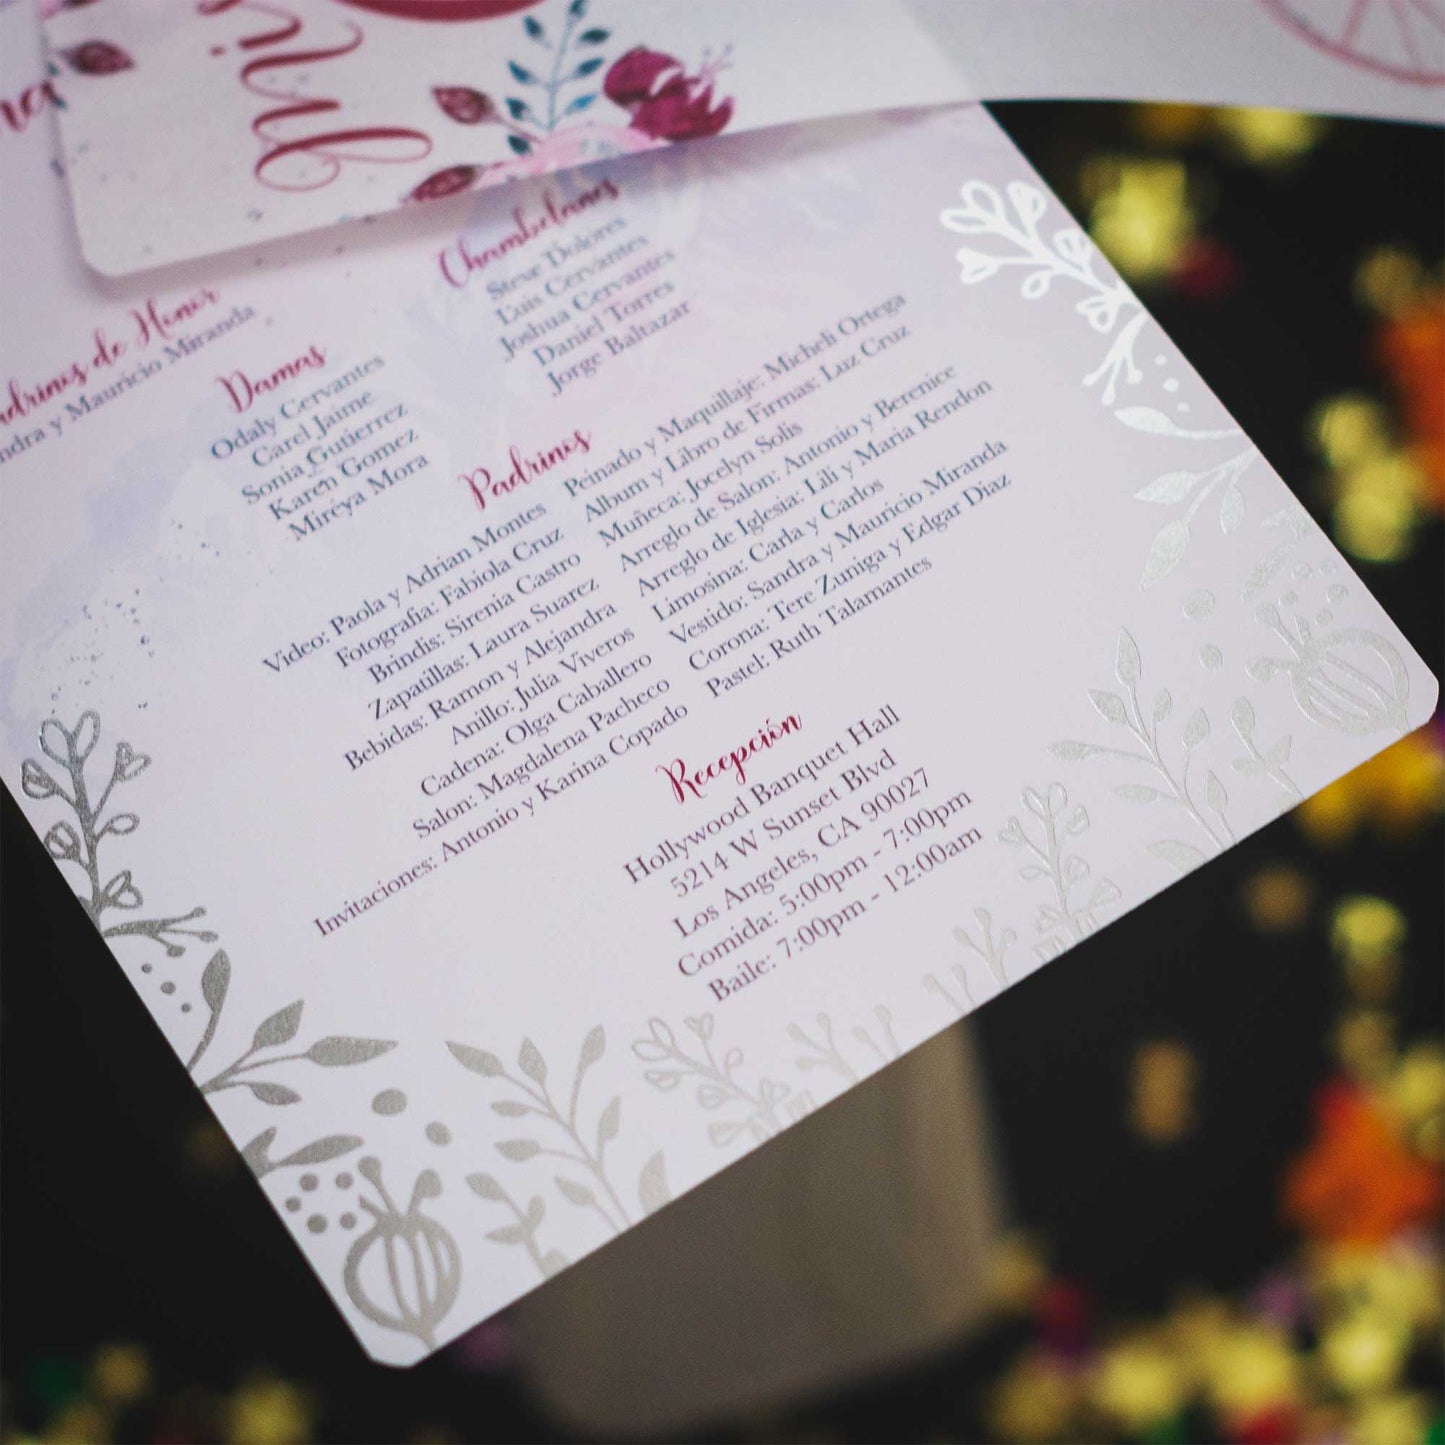 Padrinos de Honor
y Mauricio Miranda
Damas
Odaly Cervantes
Carel Jaime
Sonia Gutierrez
Karen Gomez
Mireya Mora
Chambelanes
Steve Dolores
Luis Cervantes
Joshua Cervantes
Daniel Torres
Jorge Baltazar
Padrinos
Video: Paola y Adrian Montes
Fotografia: Fabiola Cruz
Brindis: Sirenia Castro
Zapatillas: Laura Suarez
Bebidas: Ramon y Alejandra
Anillo: Julia Viveros
Cadena: Olga Caballero
Salon: Magdalena Pacheco
Invitaciones: Antonio y Karina Copado
Peinado y Maquillaje: Micheli Ortega
Album y Libro de Firmas: Luz Cruz
Muñeca: Jocelyn Solis
Arreglo de Salon: Antonio y Berenice
Arreglo de Iglesia: Lili y Maria Rendon
Limosina: Carla y Carlos
Vestido: Sandra y Mauricio Miranda
Corona: Tere Zuniga y Edgar Diaz
Pastel: Ruth Talamantes
Recepción
Hollywood Banquet Hall
5214 W Sunset Blvd
Los Angeles, CA 90027
Comida: 5:00pm - 7:00pm
Baile: 7:00pm - 12:00am